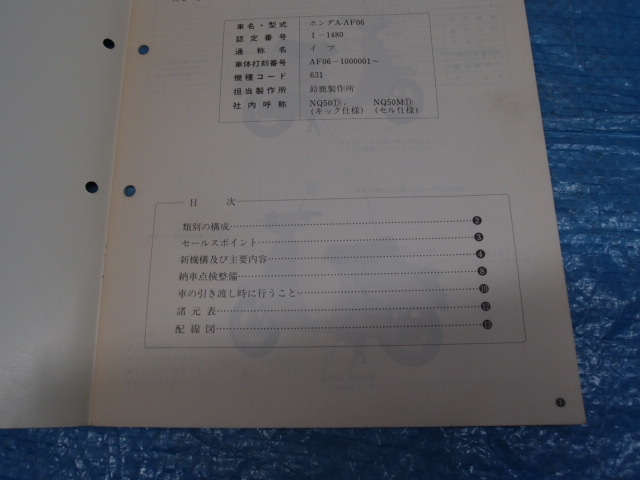 車名・型式 ホンダA-AF06
認定番号 I-1480
通称名 イブ
車体打刻番号 AF06-1000001～
機種コード 631
担当製作所 鈴鹿製作所
社内呼称 NQ50Ⓓ、 NQ50MⒹ
(キック仕様) (セル仕様)
目次
類別の構成 ❷
セールスポイント ❸
新機構及び主要内容 ❹
納車点検整備 ❽
車の引き渡し時に行うこと ❿
諸元表 ⓬
配線図 ⓭
❶